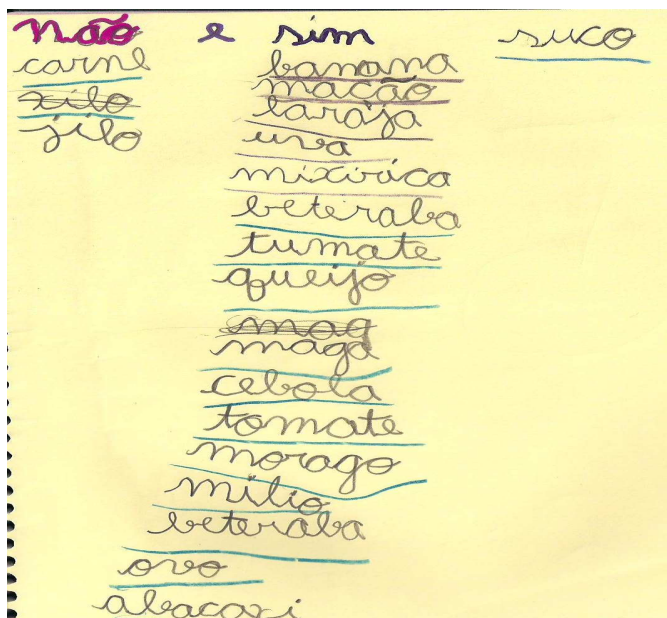 não e sim suco
carne banana
xilo mação
jilo laraja
uva
mixirica
beteraba
tumate
queijo
mag
maga
cebola
tomate
morago
milio
beteraba
ovo
abacaxi